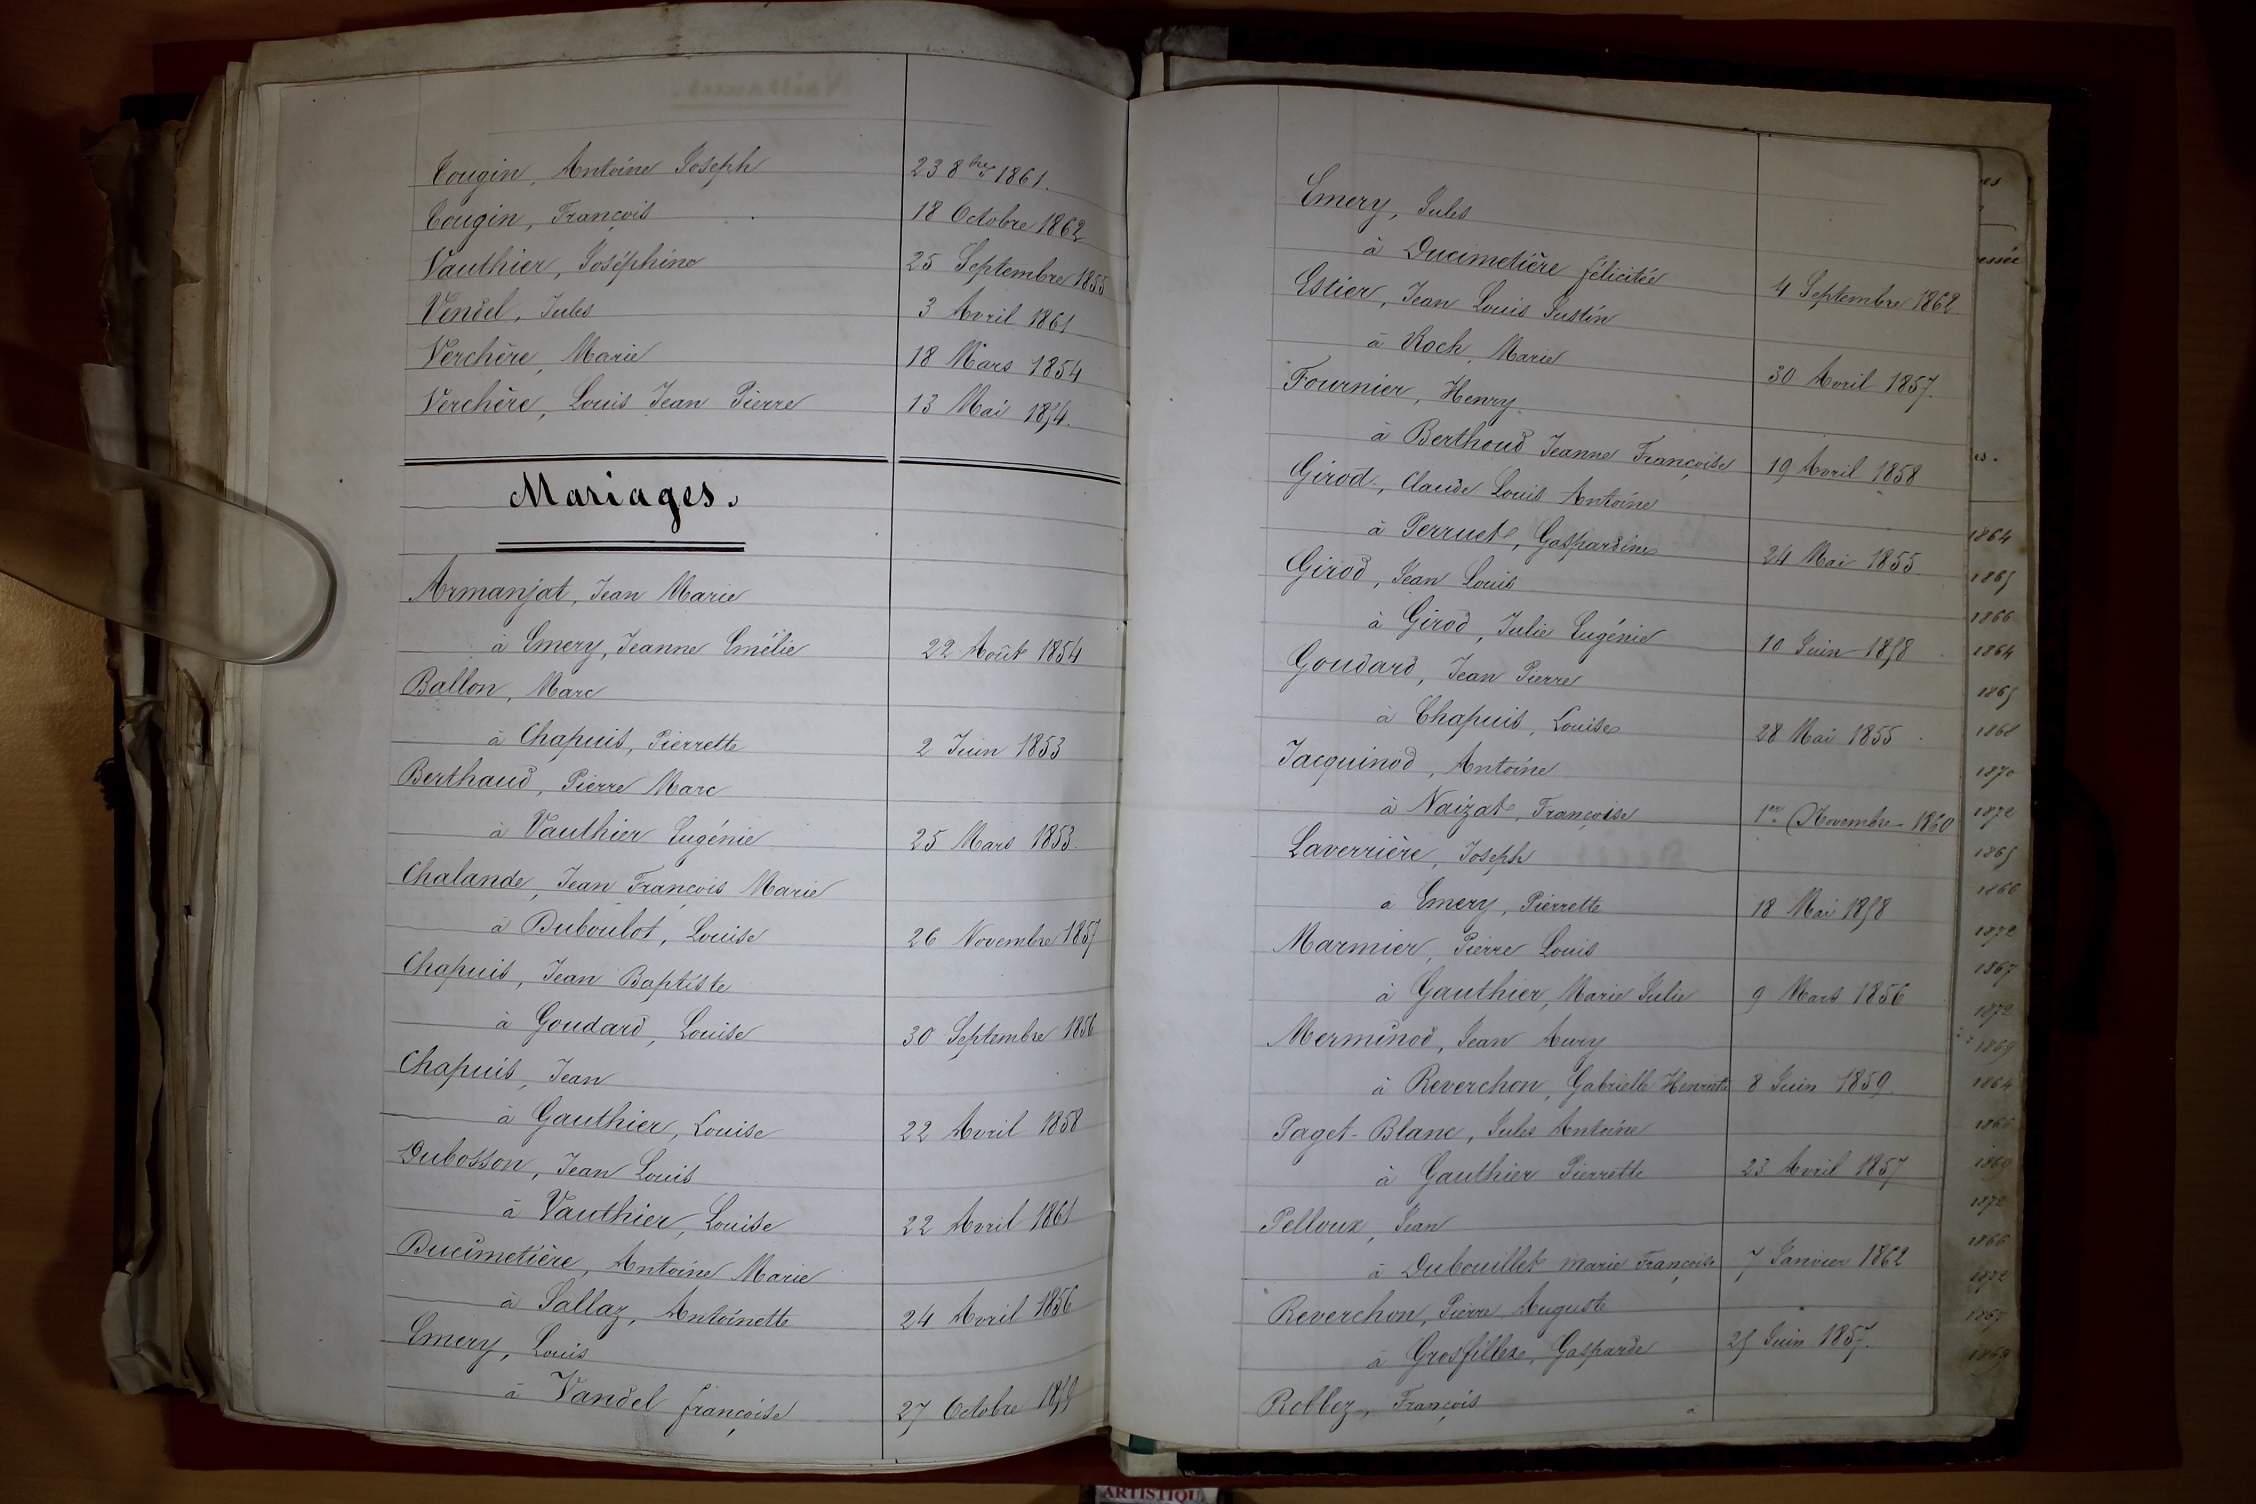 Tougin, Antoine Joseph 23 8bre 1861.
Tougin, François 18 Octobre 1862
Vauthier, Joséphine 25 Septembre 1855
Vendel, Jules 3 Avril 1861
Verchère, Marie 18 Mars 1854
Verchère, Louis Jean Pierre 13 Mai 1854.
Mariages.
Armanjat, Jean Marie
à Emery, Jeanne Emélie 22 Août 1854
Ballon, Marc
à Chapuis, Pierrette 2 Juin 1853
Berthaud, Pierre Marc
à Vauthier Eugénie 25 Mars 1853.
Chalande, Jean François Marie
à Duboulot, Louise 26 Novembre 1857
Chapuis, Jean Baptiste
à Goudard, Louise 30 Septembre 1856
Chapuis, Jean
à Gauthier, Louise 22 Avril 1858
Dubosson, Jean Louis
à Vauthier, Louise 22 Avril 1861
Ducimetière, Antoine Marie
à Sallaz, Antoinette 24 Avril 1856
Emery, Louis
à Vandel françoise 27 Octobre
Emery, Jules
à Ducimetière félicitée 4 Septembre 1862
Estier, Jean Louis Justin
à Roch, Marie 30 Avril 1857.
Fournier, Henry
à Berthoud Jeanne Françoise 19 Avril 1858
Girod, Claude Louis Antoine
à Perruet, Gaspardine 24 Mai 1855
Girod, Jean Louis
à Girod, Julie Eugénie 10 Juin 1858
Goudard, Jean Pierre
à Chapuis, Louise 28 Mai 1855
Jacquinod, Antoine
à Naizat, Françoise 1er Novembre 1860
Laverrière, Joseph
à Emery, Pierrette 18 Mai 1858
Marmier, Pierre Louis
à Gauthier, Marie Julie 9 Mars 1856
Merminod, Jean Aury
à Reverchon, Gabrielle Henriette 8 Juin 1859
Paget-Blanc, Jules Antoine
à Gauthier Pierrette 23 Avril 1857
Pelloux, Jean
à Dubouillet marie Françoise 7 Janvier 1862
Reverchon, Pierre Auguste
à Grosfillex, Gasparde 25 Juin 1857.
Rollez, François
1864
1865
1866
1864
1865
1868
1870
1872
1865
1866
1872
1867
1872
1869
1864
1866
1869
1872
1866
1872
1867
1869
ARTISTIQU